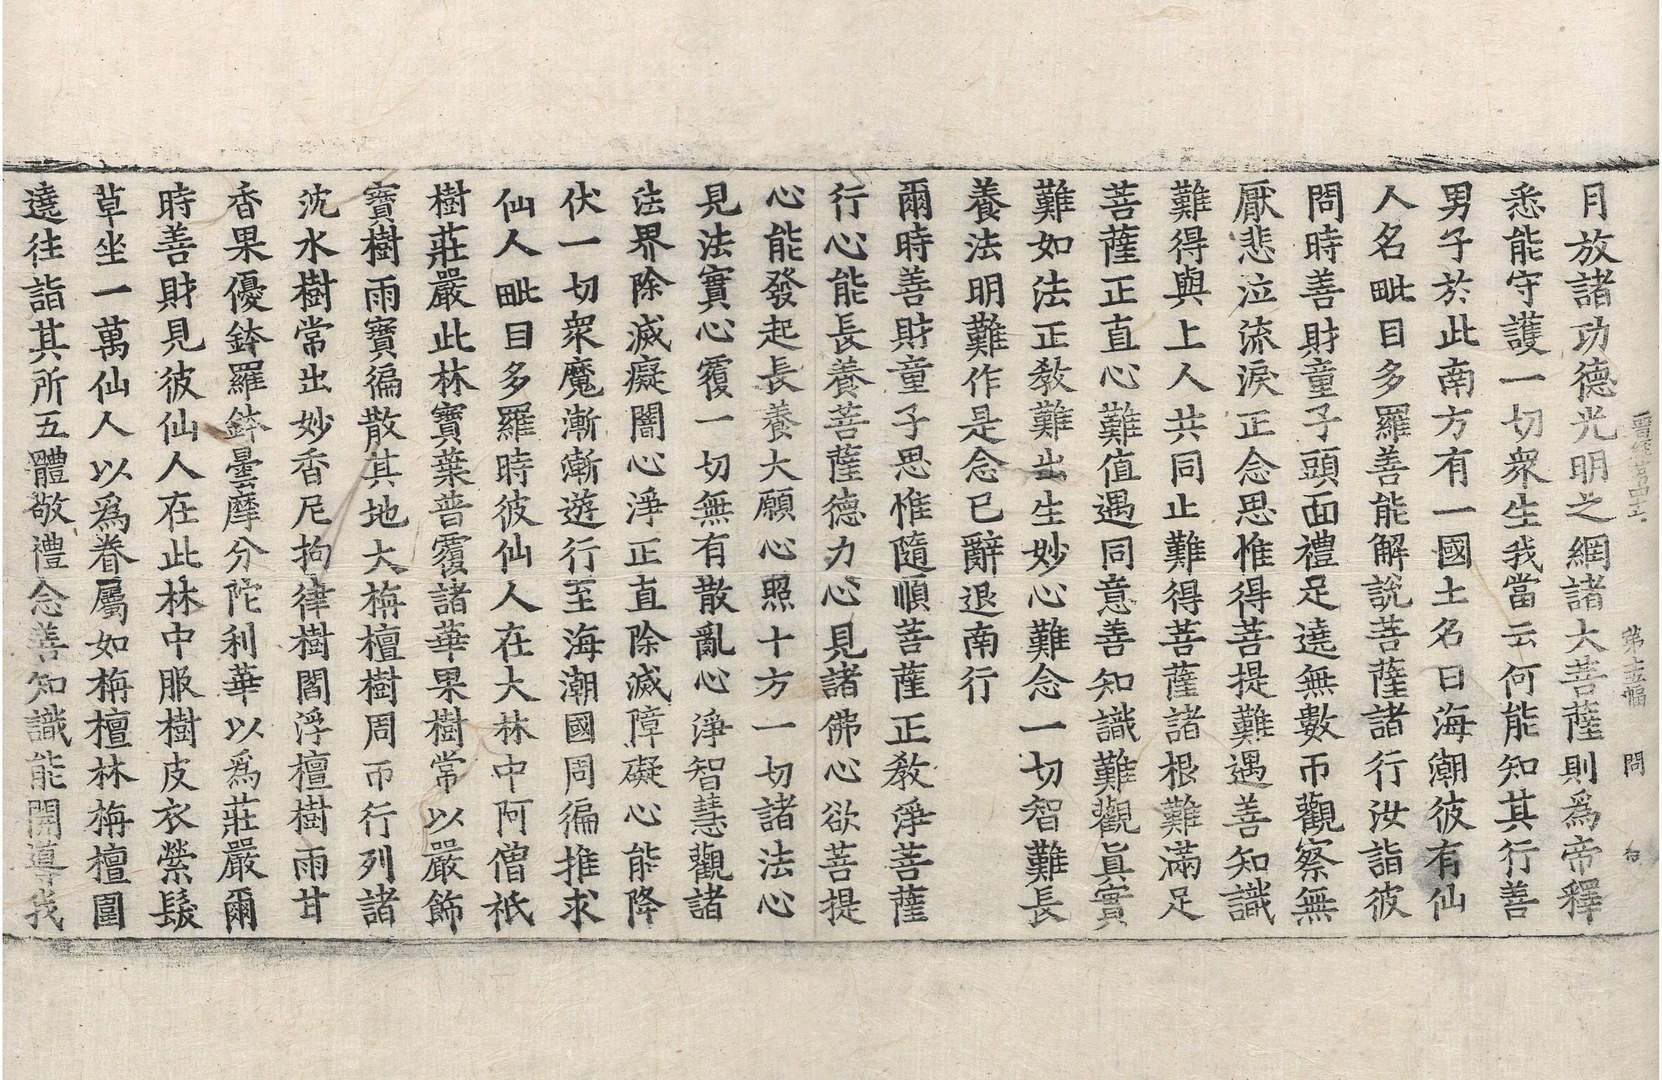 晉經
第十五幅　問
月放諸功德光明之網諸大菩薩則爲帝釋
悉能守護一切衆生我當云何能知其行善
男子於此南方有一國土名曰海潮彼有仙
人名毗目多羅善能解說菩薩諸行汝詣彼
問時善財童子頭面禮足遶無數帀觀察無
厭悲泣流淚正念思惟得菩提難遇善知識
難得與上人共同止難得菩薩諸根難滿足
菩薩正直心難值遇同意善知識難觀眞實
難如法正教難出生妙心難念一切智難長
養法明難作是念已辭退南行
爾時善財童子思惟隨順菩薩正教淨菩薩
行心能長養菩薩德力心見諸佛心欲菩提
心能發起長養大願心照十方一切諸法心
見法實心覆一切無有散亂心淨智慧觀諸
法界除滅癡闇心淨正直除滅障礙心能降
伏一切衆魔漸漸遊行至海潮國周徧推求
仙人毗目多羅時彼仙人在大林中阿僧祇
樹莊嚴此林寶葉普覆諸華果樹常以嚴飾
寶樹雨寶徧散其地大栴檀樹周帀行列諸
沈水樹常出妙香尼拘律樹閻浮檀樹雨甘
香果優鉢羅鉢曇摩分陀利華以爲莊嚴爾
時善財見彼仙人在此林中服樹皮衣縈髮
草坐一萬仙人以爲眷屬如栴檀林栴檀圍
遶往詣其所五體敬禮念善知識能開導我